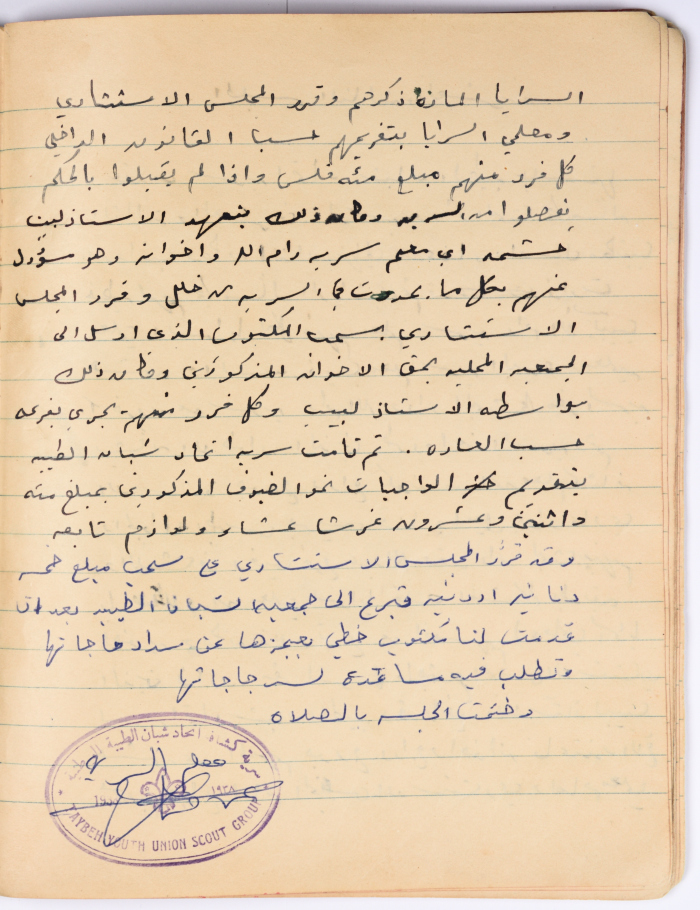 السرايا المارة ذكرهم وقرر المجلس الاستشاري
ومعلمي السرايا بتغريمهم حسب القانون الداخلي
كل فرد منهم مبلغ مئة فلس واذا لم يقبلوا بالحكم
يفصلوا من السريه وكان ذلك بتعهد الاستاذ لبيب
حشمه اي معلم سريه رام الله واخوانه وهو مسؤول
عنهم بكل ما يحدث في السريه من خلل وقرر المجلس
الاستشاري بسحب المكتوب الذي ارسل الى
الجمعيه المحليه بحق الاخوان المذكورين وكان ذلك
بواسطه الاستاذ لبيب وكل فرد منهم يجري تغريمه
حسب العاده . ثم قامت سرية اتحاد شبان الطيبه
بتقديم الواجبات نحو الضيوف المذكورين بمبلغ مئه
واثنين وعشرون غرشا عشاء ولوازم تابعه
وقد قرر المجلس الاستشاري على سحب مبلغ خمسه
دنانير اردنيه تبرع الى جمعية شبان الطيبه بعد ان
قدمت لنا مكتوب خطي بعجزها عن سداد حاجاتها
وتطلب فيه مساعده لسد حاجاتها
وختمت الجلسه بالصلاه
سرية كشافة اتحاد شبان الطيبة
معلم السرية
١٩٣٨
TAYBEH YOUTH UNION SCOUT GROUP